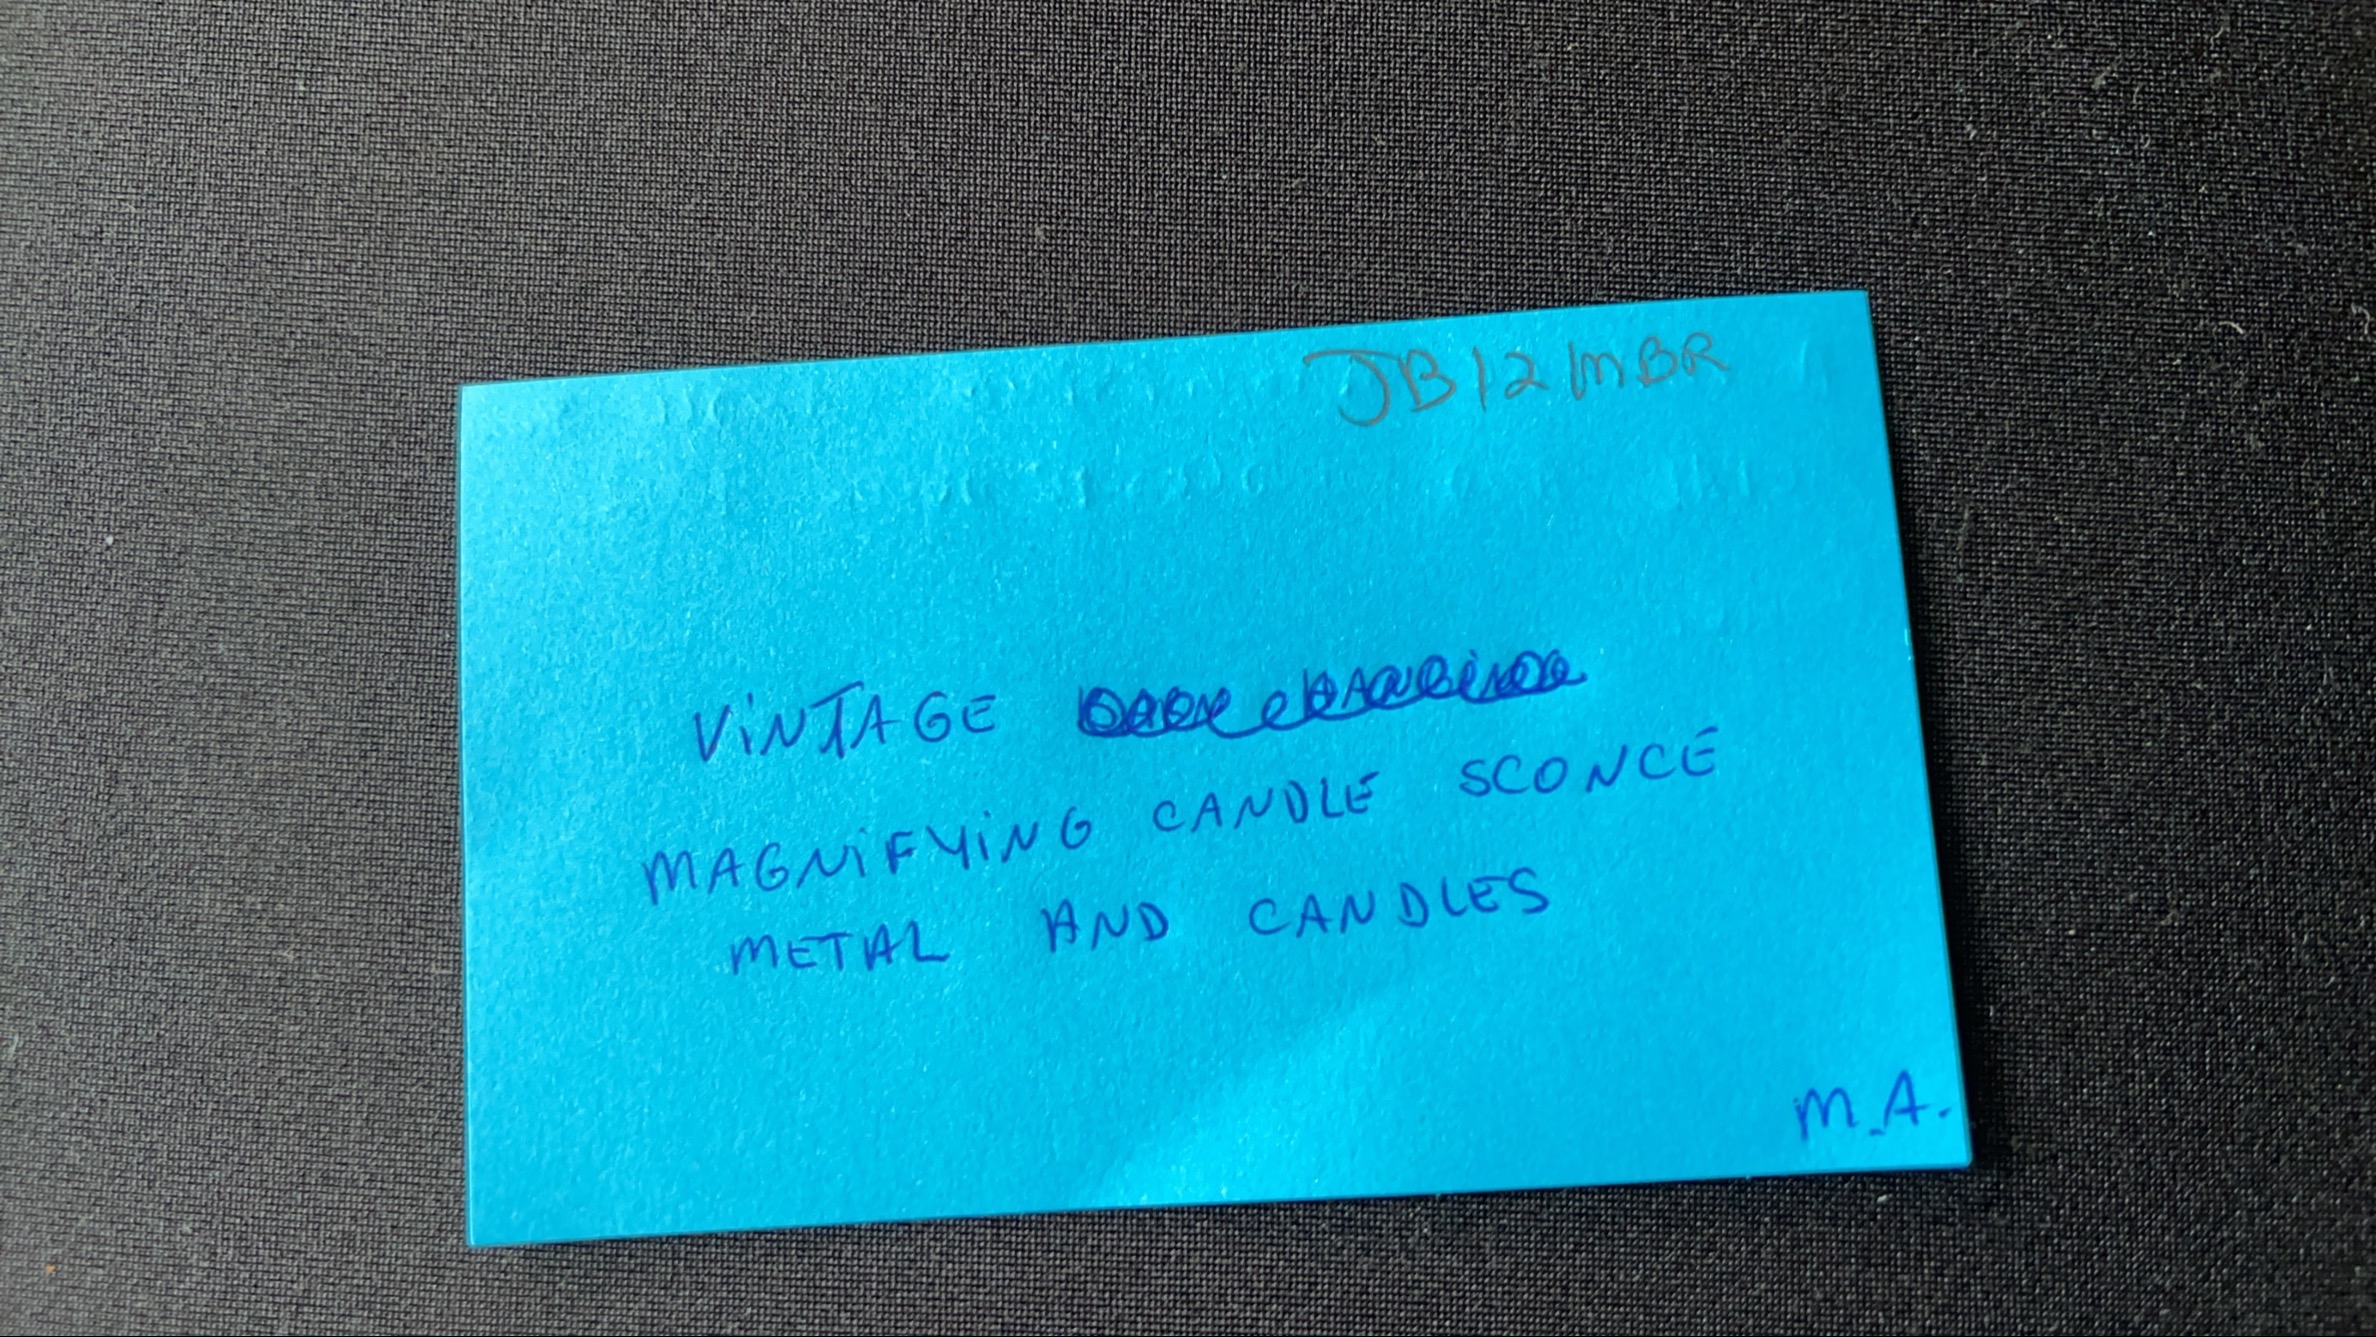 JB12MBR
ViNTAGE
MAGNiFYiNG CANDLE SCONCE
METAL AND CANDLES
M.A.